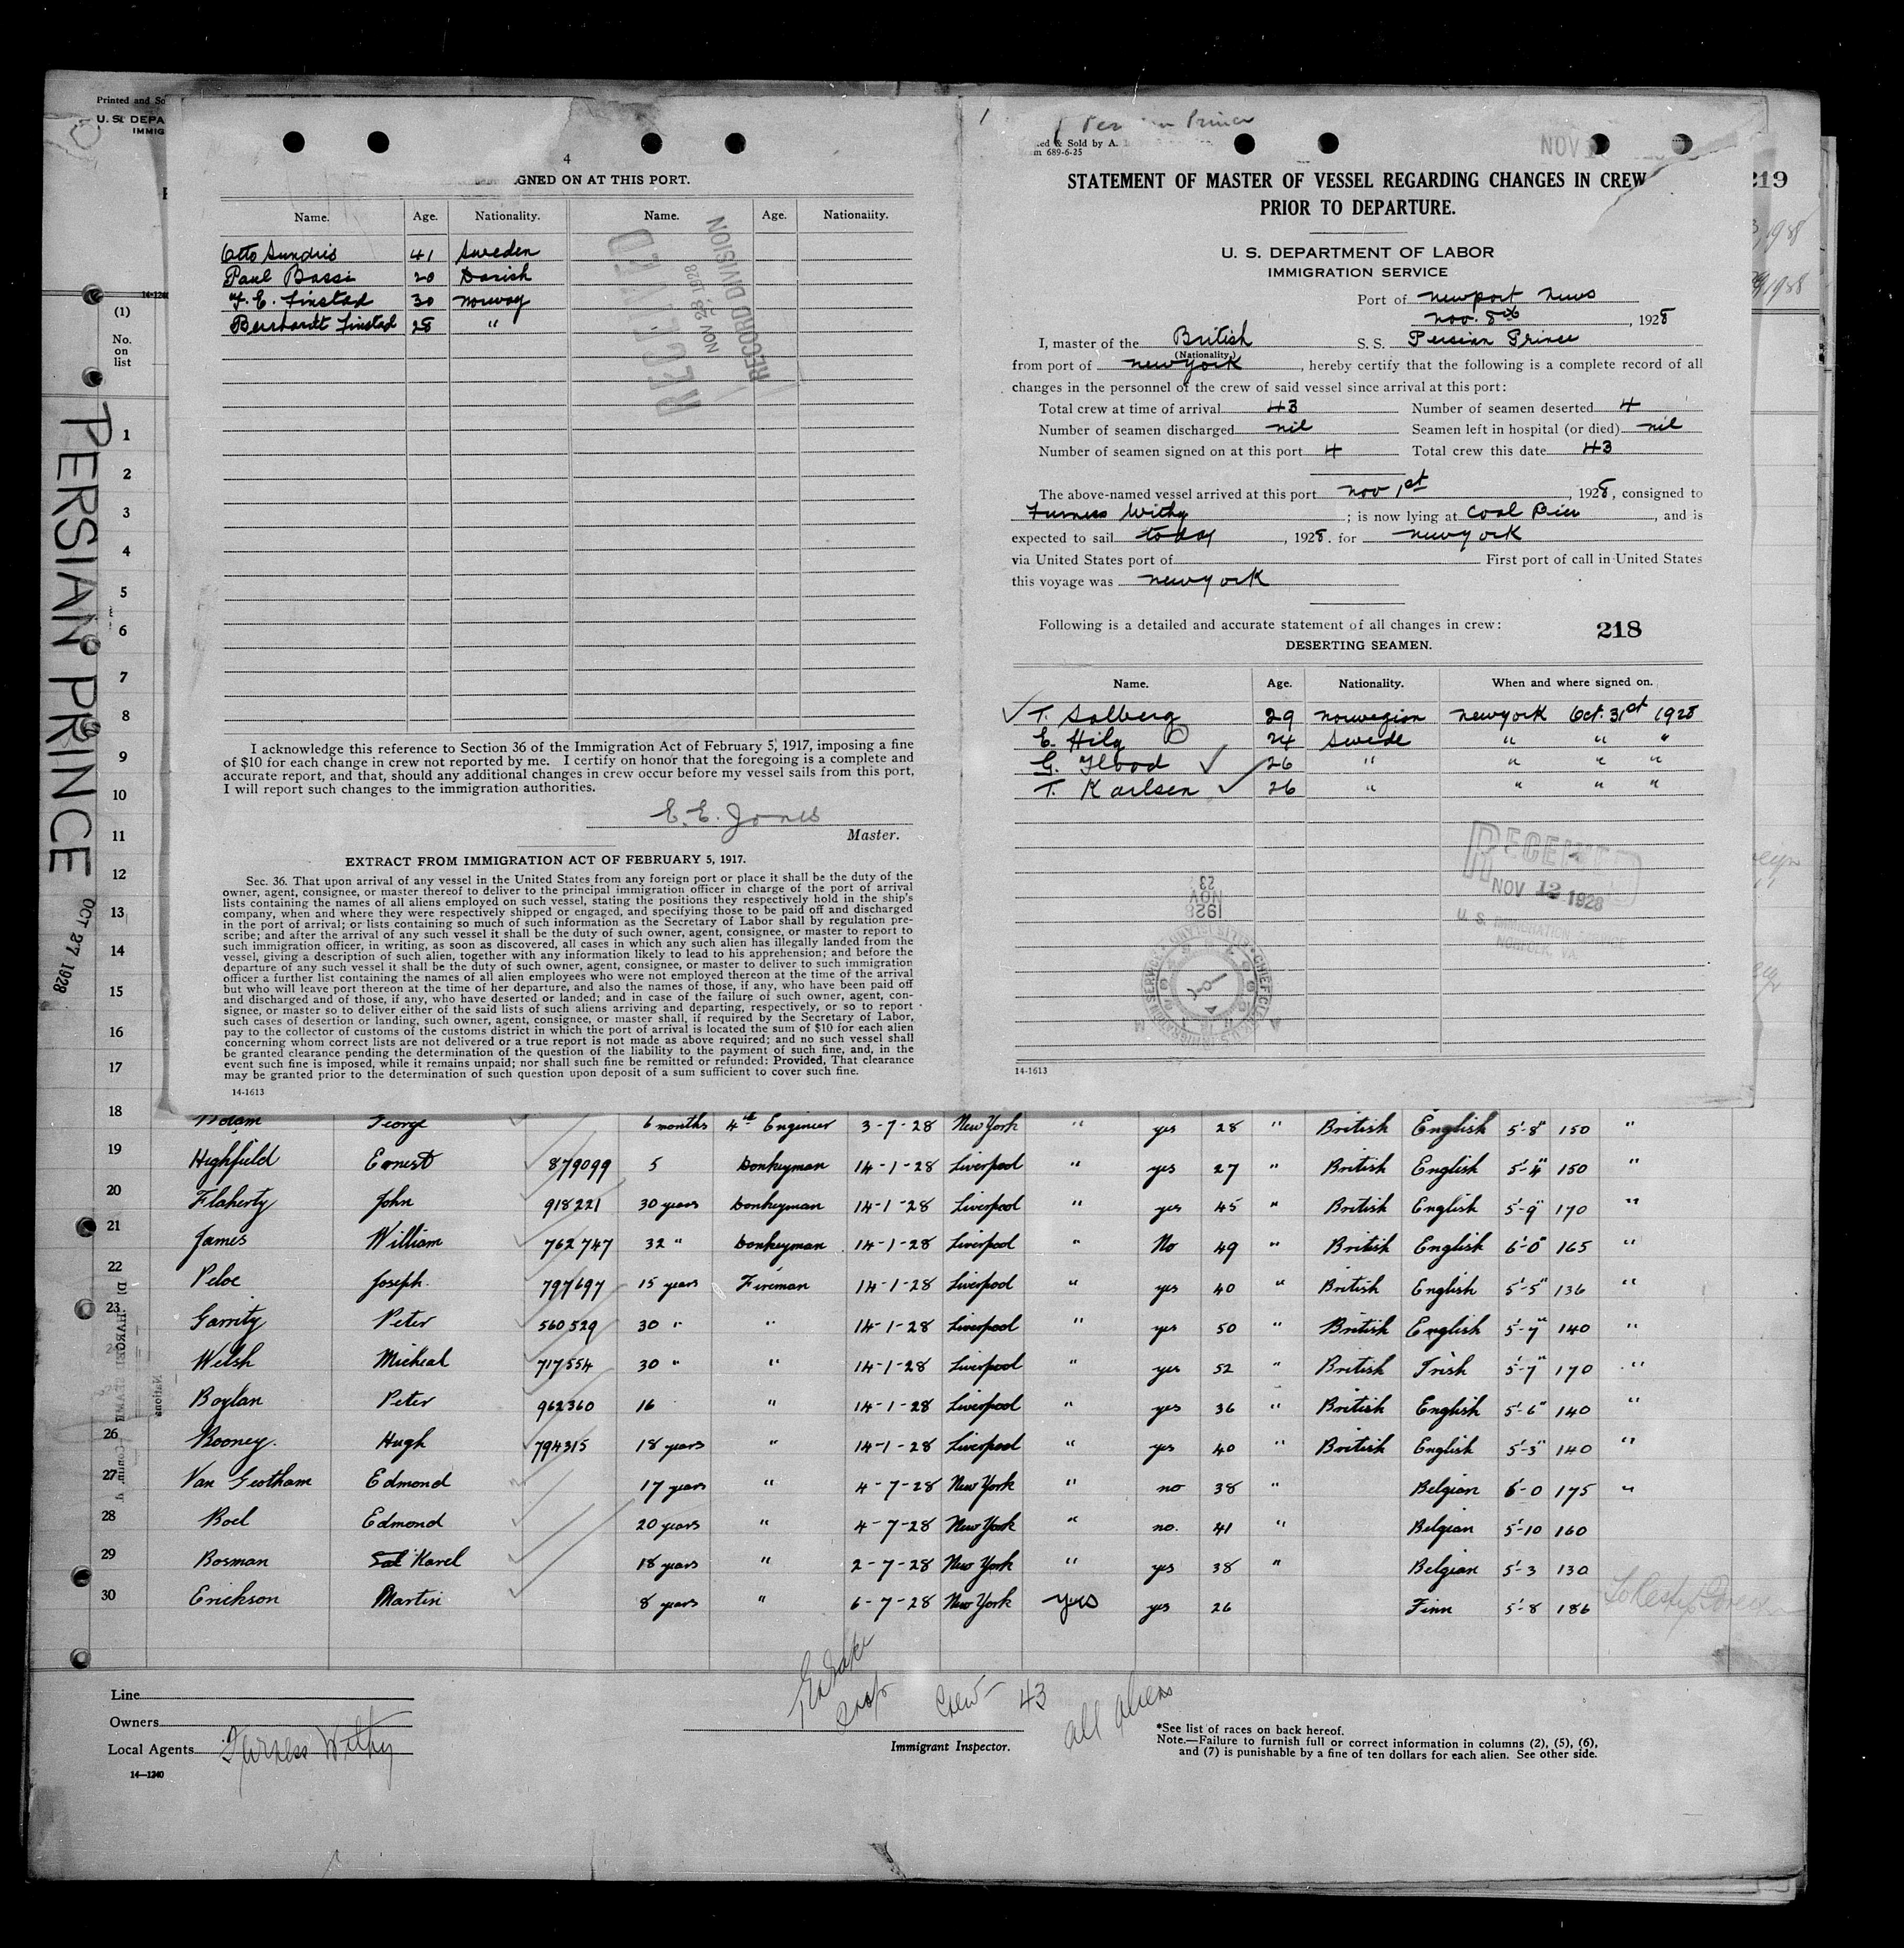 Printed and So
U. S. DEPA
IMMIG
14-1240
(1)
No.
on
list
1
2
3
4
5
6
7
8
9
10
11
12
13
14
15
16
17
PERSIAN PRINCE
OCT 27 1928
4
GNED ON AT THIS PORT.
Name. Age. Nationality. Name. Age. Nationality.
Otto Sundris 41 Sweden
Paul Bassi 20 Danish
F. E. Finstad 30 Norway
Bernhardt Finstad 28 "
RECEIVED
NOV 23 1928
RECORD DIVISION
I acknowledge this reference to Section 36 of the Immigration Act of February 5, 1917, imposing a fine
of $10 for each change in crew not reported by me. I certify on honor that the foregoing is a complete and
accurate report, and that, should any additional changes in crew occur before my vessel sails from this port,
I will report such changes to the immigration authorities.
E. E. Jones
Master.
EXTRACT FROM IMMIGRATION ACT OF FEBRUARY 5, 1917.
Sec. 36. That upon arrival of any vessel in the United States from any foreign port or place it shall be the duty of the
owner, agent, consignee, or master thereof to deliver to the principal immigration officer in charge of the port of arrival
lists containing the names of all aliens employed on such vessel, stating the positions they respectively hold in the ship's
company, when and where they were respectively shipped or engaged, and specifying those to be paid off and discharged
in the port of arrival; or lists containing so much of such information as the Secretary of Labor shall by regulation pre-
scribe; and after the arrival of any such vessel it shall be the duty of such owner, agent, consignee, or master to report to
such immigration officer, in writing, as soon as discovered, all cases in which any such alien has illegally landed from the
vessel, giving a description of such alien, together with any information likely to lead to his apprehension; and before the
departure of any such vessel it shall be the duty of such owner, agent, consignee, or master to deliver to such immigration
officer a further list containing the names of all alien employees who were not employed thereon at the time of the arrival
but who will leave port thereon at the time of her departure, and also the names of those, if any, who have been paid off
and discharged and of those, if any, who have deserted or landed; and in case of the failure of such owner, agent, con-
signee, or master so to deliver either of the said lists of such aliens arriving and departing, respectively, or so to report
such cases of desertion or landing, such owner, agent, consignee, or master shall, if required by the Secretary of Labor,
pay to the collector of customs of the customs district in which the port of arrival is located the sum of $10 for each alien
concerning whom correct lists are not delivered or a true report is not made as above required; and no such vessel shall
be granted clearance pending the determination of the question of the liability to the payment of such fine, and, in the
event such fine is imposed, while it remains unpaid; nor shall such fine be remitted or refunded: Provided, That clearance
may be granted prior to the determination of such question upon deposit of a sum sufficient to cover such fine.
14-1613
Prince
ed & Sold by A.
m 689-6-25
NOV
STATEMENT OF MASTER OF VESSEL REGARDING CHANGES IN CREW
PRIOR TO DEPARTURE.
219
U. S. DEPARTMENT OF LABOR
IMMIGRATION SERVICE
Port of Newport News
Nov. 8th, 1928
I, master of the British S. S. Persian Prince
(Nationality)
from port of New York, hereby certify that the following is a complete record of all
changes in the personnel of the crew of said vessel since arrival at this port:
Total crew at time of arrival 43 Number of seamen deserted 4
Number of seamen discharged nil Seamen left in hospital (or died) nil
Number of seamen signed on at this port 4 Total crew this date 43
The above-named vessel arrived at this port Nov 1st, 1928, consigned to
Furness Withy; is now lying at Coal Pier, and is
expected to sail today, 1928. for New York
via United States port of First port of call in United States
this voyage was New York
Following is a detailed and accurate statement of all changes in crew: 218
DESERTING SEAMEN.
Name. Age. Nationality. When and where signed on.
T. Solberg 29 Norwegian New York Oct. 31st 1928
E. Hilg 24 Swede " " "
G. Flood 26 " " " "
T. Karlsen 26 " " " "
RECEIVED
NOV 12 1928
U. S. IMMIGRATION SERVICE
NORFOLK, VA.
23
NOV
1928
14-1613
18 George 6 months 4th Engineer 3-7-28 New York " yes 28 " British English 5'-8" 150 "
19 Highfield Ernest 879099 5 Donkeyman 14-1-28 Liverpool " yes 27 " British English 5'-4" 150 "
20 Flaherty John 918221 30 years Donkeyman 14-1-28 Liverpool " yes 45 " British English 5'-9" 170 "
21 James William 762747 32 " Donkeyman 14-1-28 Liverpool " No 49 " British English 6'-0" 165 "
22 Peloe Joseph. 797697 15 years Fireman 14-1-28 Liverpool " yes 40 " British English 5'-5" 136 "
23 Garrity Peter 560529 30 " " 14-1-28 Liverpool " yes 50 " British English 5'-7" 140 "
Welsh Micheal 717554 30 " " 14-1-28 Liverpool " yes 52 " British Irish 5'-7" 170 "
Boylan Peter 962360 16 " 14-1-28 Liverpool " yes 36 " British English 5'-6" 140 "
26 Rooney. Hugh 794315 18 years " 14-1-28 Liverpool " yes 40 " British English 5'-3" 140 "
27 Van Geotham Edmond 17 years " 4-7-28 New York " no 38 " Belgian 6'-0 175 "
28 Roel Edmond 20 years " 4-7-28 New York " no. 41 " Belgian 5'-10 160
29 Bosman Karel 18 years " 2-7-28 New York " yes 38 " Belgian 5'-3 130
30 Erickson Martin 8 years " 6-7-28 New York yes yes 26 Finn 5'-8 186
Line
Owners
Local Agents Furness Withy
14-1240
Crew - 43
all aliens
Immigrant Inspector.
*See list of races on back hereof.
Note.—Failure to furnish full or correct information in columns (2), (5), (6),
and (7) is punishable by a fine of ten dollars for each alien. See other side.